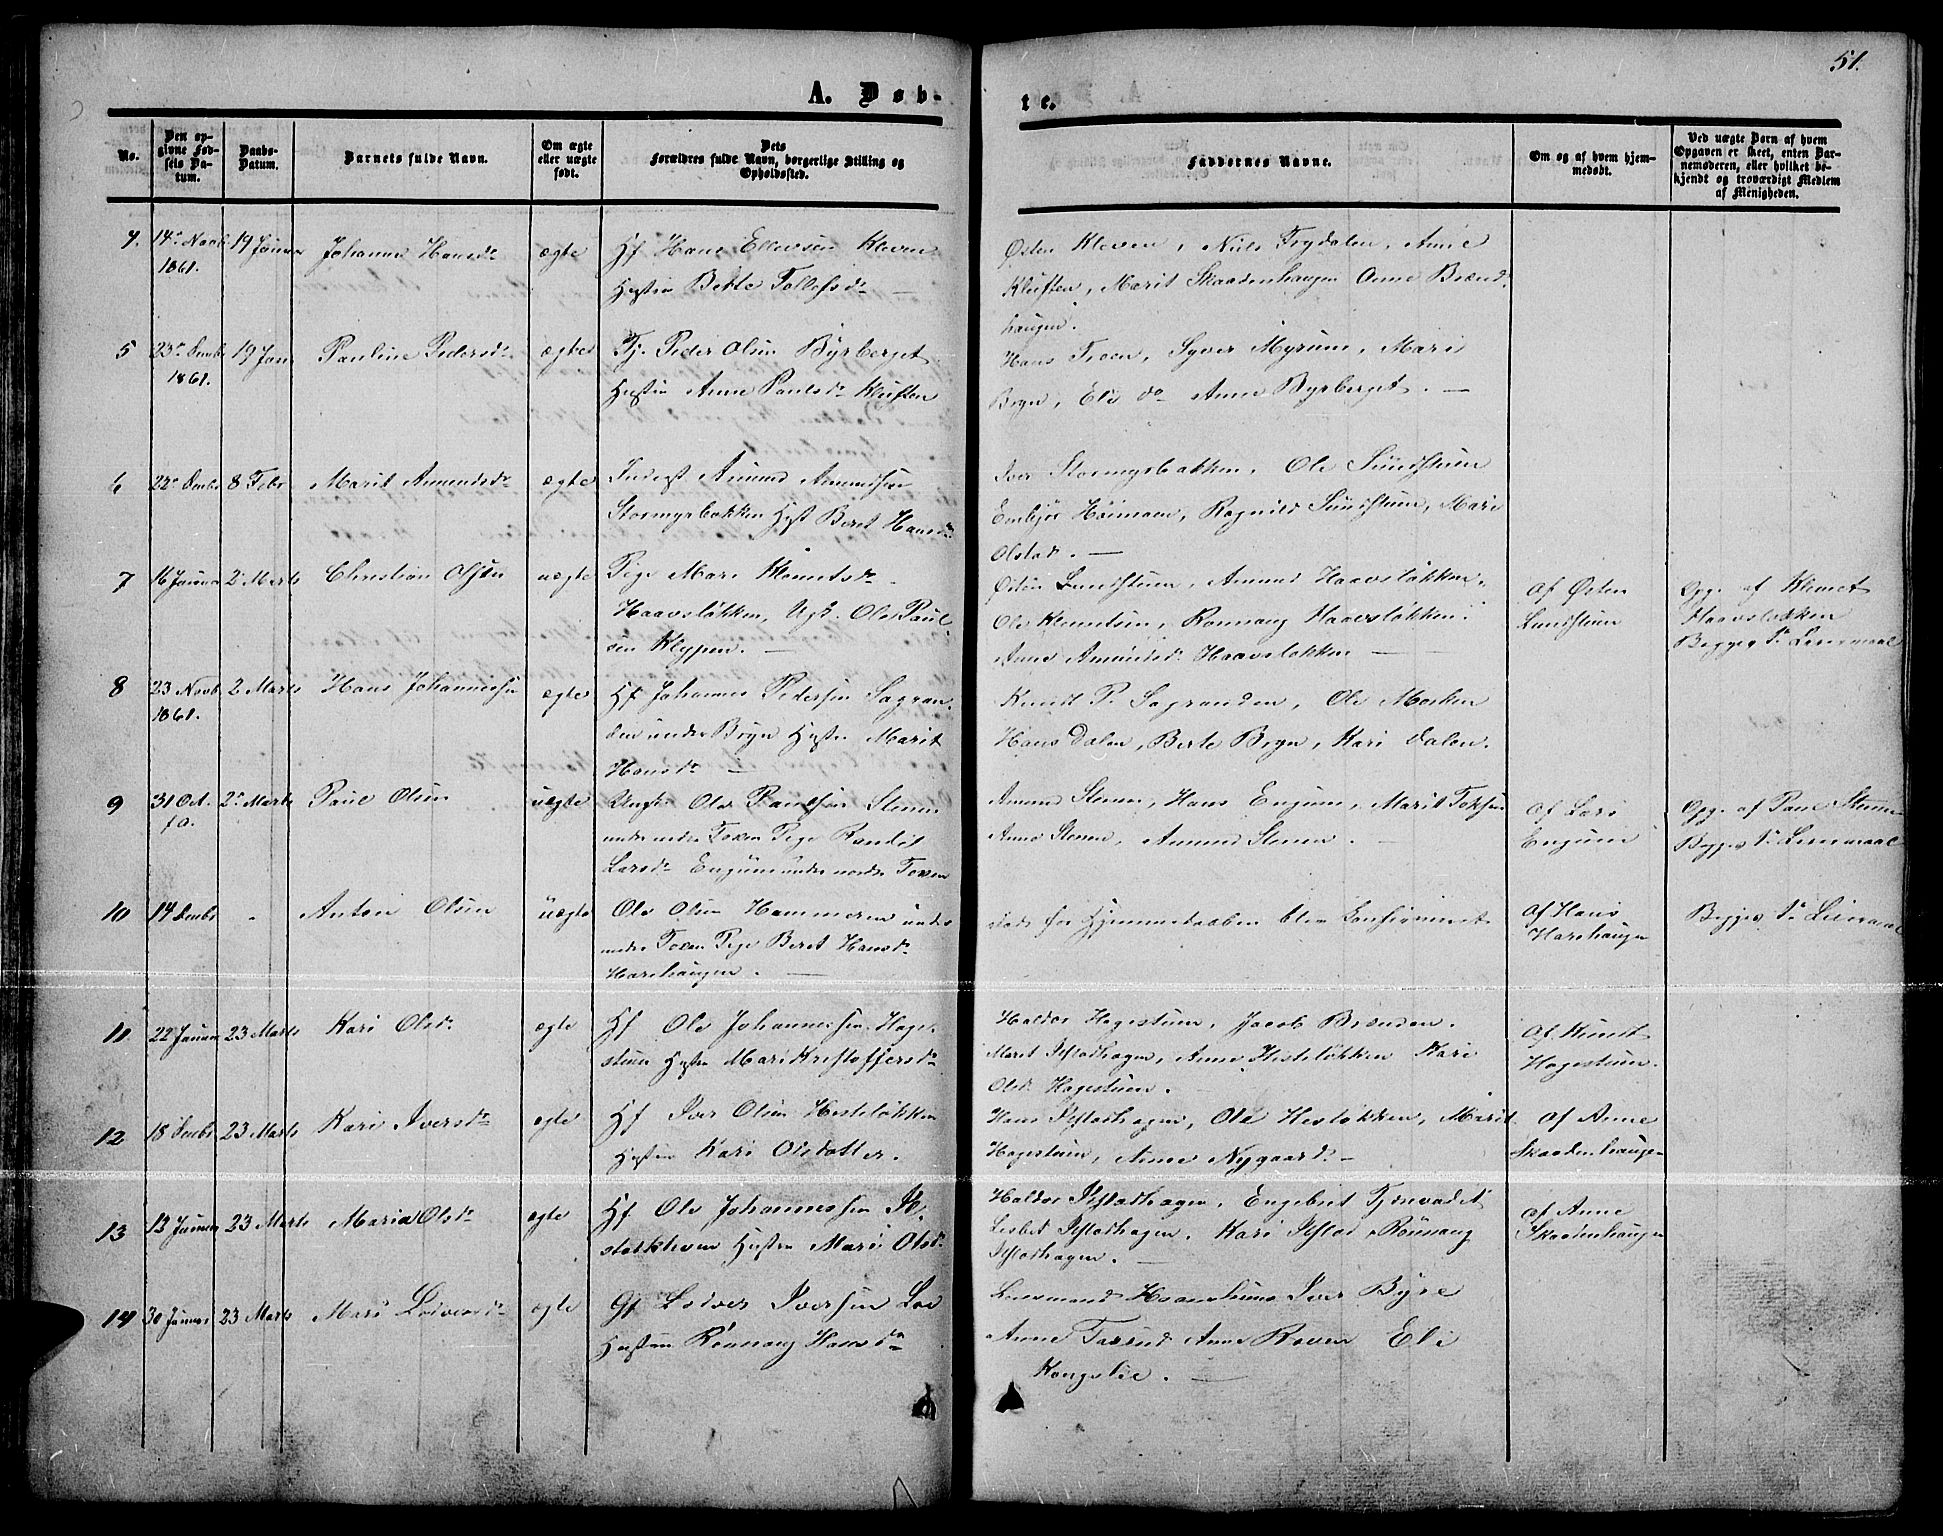 51.
A. Døb-
te.
No.
Den op-
givne Fød-
sels Da-
tum.
Daabs-
Datum.
Barnets fulde Navn.
Om ægte
eller uægte
født.
Dets
Forældres fulde Navn, borgerlige Stilling og
Opholdssted.
Faddernes Navne.
Om og af hvem hjem-
medøbt.
Ved uægte Børn af hvem
Opgaven er skeet, enten Bar-
nemoderen, eller hvilket be-
kjendt og troværdigt Medlem
af Menigheden.
4. 14de Novb 19 Januar Johanne Hansdr ægte Gf Hans Ellevsen Kleven
1861.
Hustru Berte Tollefsdr —
Østen Kleven, Niels Frydalen, Anne
Kluften, Marit Skaadenhaugen Anne Brænd-
haugen.
5 23de Decbr 19 Jan Pauline Pedersdr ægte Tj. Peder Olsen Byrberget
1861.
Hustru Anne Paulsdr Kluften
Hans Troen, Syver Myrum, Mari
Bryn, Eli do Anne Byrberget. —
6 22de Decbr 8 Febr Marit Amundsdr ægte Inderst Amund Amundsen
Stormyrbakken Hust Beret Hansdr
Iver Stormyrbakken, Ole Sundstuen
Embjør Høimoen, Ragnild Sundstuen, Mari
Olstad. —
7 16 Januar 2 Marts Christian Olsen uægte Pige Mari Klemetsdr
Haavsløkken, Ugk. Ole Paul-
sen Klypen. —
Østen Lundstuen, Amund Haavsløkken,
Ole Klemetsen, Rønnaug Haavsløkken.
Anne Amundsd. Haavsløkken —
af Østen
Lundstuen
Opg. af Klemet
Haavsløkken
Begges 1ste Leiermaal
8 23 Novb 2 Marts Hans Johannessen ægte Hf Johannes Pedersen Sagran-
1861.
den under Bryn Hustru Marit
Hansdr —
Knud P. Sagranden, Ole Moshen
Hans Dalen, Berte Bryn, Kari Dalen.
9 31 Oct. 2de Marts Paul Olsen uægte Ungk. Ole Paulsen Stenen
f.a.
under nedre Toxen Pige Randit
Larsdr Engum under nordre Toxen
Amund Stenen, Hans Engum, Marit Toksen
Anne Stenen, Amund Stenen. —
af Lars
Engum
Opg. af Paul Stenen
Begges 1ste Leiermaal
10 14 Decbr - Anton Olsen uægte Ole Olsen Hammeren under
nedre Toxen Pige Beret Hansdr
Harehaugen. —
døde før Hjemmedaaben blev Confirmeret
af Hans
Harehaugen
Begges 1ste Leiermaal
11 22 Januar 23 Marts Kari Olsdr ægte Hf Ole Johannessen Hage-
stuen Hustru Mari Kristoffersdr
Haldor Hagestuen, Jacob Brænden.
Maret Ilstadhagen, Anne Hesteløkken Kari
Olsd. Hagestuen.
af Knut
Hagestuen.
12 18 Decbr 23 Marts Kari Iversdr ægte Hf Iver Olsen Hesteløkken
Hustru Kari Olsdatter.
Hans Ilstadhagen, Ole Hesløkken, Marit
Hagestuen, Anne Nygaard. —
af Anne
Skaadenhaugen
13 12 Januar 23 Marts Maria Olsdr ægte Hf Ole Johannessen Il-
stadkleven Hustru Mari Olsdr
Haldor Ilstadhagen, Engebret Tjernvadet
Lisbet Ilstadhagen, Kari Ilstad, Rønnaug
Ilstadhagen. —
af Anne
Skaadenhaugen
14 30 Januar 23 Marts Mari Lodversdr ægte Gf Lodver Iversen Loe
Hustru Rønnaug Hansdr
Lensmand Haanstuens Iver Byre
Anne Taarud Anne Roven Eli
Kongslie. —